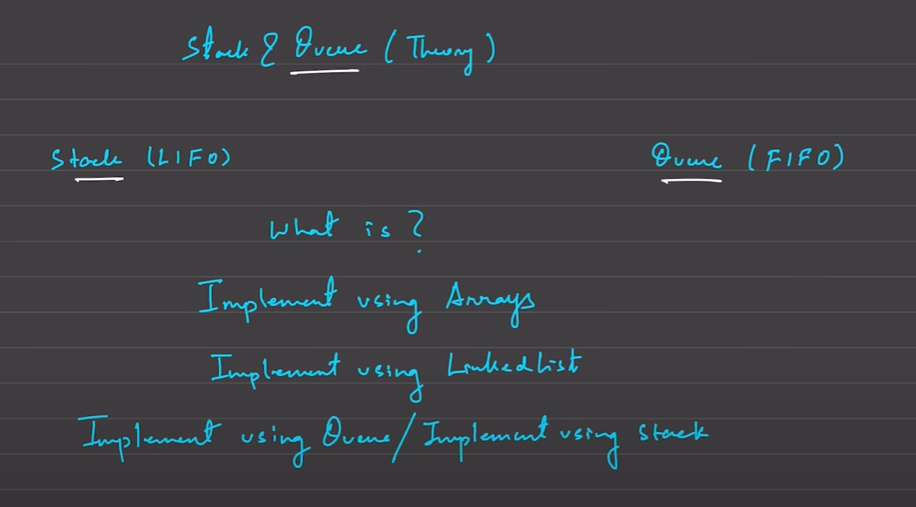 Stack & Queue (Theory)
Stack (LIFO)
Queue (FIFO)
What is ?
Implement using Arrays
Implement using LinkedList
Implement using Queue / Implement using Stack